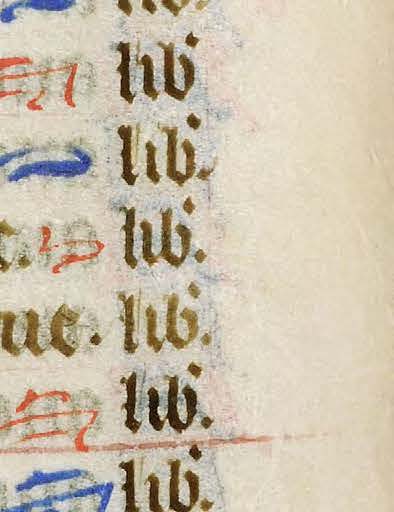 lib'.
lib'
lib'.
c. lib'.
ue. lib'.
lib'.
lib'.